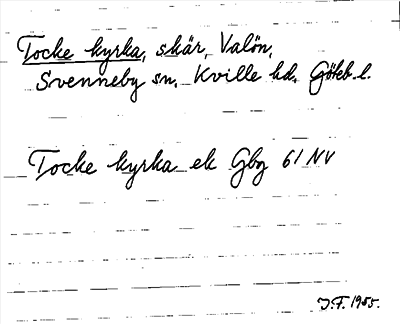 Tocke kyrka, skär, Valön,
Svenneby sn. Kville hd. Göteb. l.
Tocke kyrka ek Gbg 61 NV
J.F. 1955.